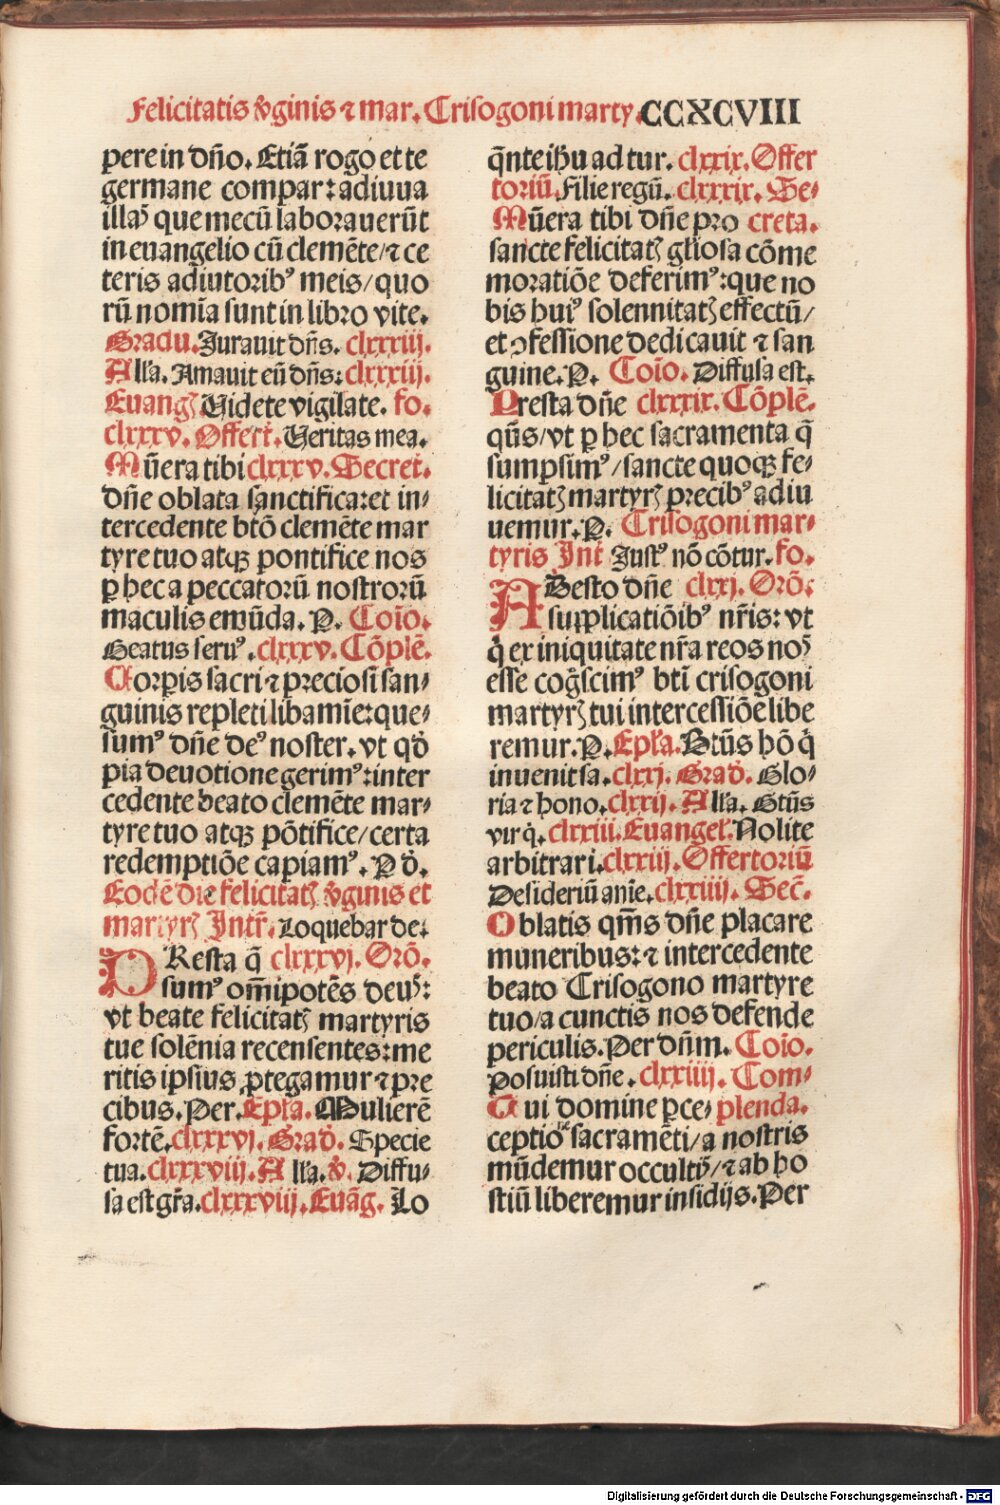 Felicitatis v̾ginis ⁊ mar. Crisogoni marty. CCXCVIII
pere in dño. Etiã rogo et te
germane compar: adiuua
illaꝫ que mecũ laborauerũt
in euangelio cũ clemẽte/⁊ ce
teris adiutoribꝰ meis/quo
rũ nomĩa sunt in libro vite.
Gradu. Iurauit dñs. clxxxiij.
Alľa. Amauit eũ dñs: clxxxiij.
Euangꝫ Uidete vigilate. fo.
clxxxv. Offert̃. Ueritas mea.
Mũera tibi clxxxv. Secret.
dñe oblata sanctifica:et in-
tercedente btõ clemẽte mar
tyre tuo atqꝫ pontifice nos
ꝑ hec a peccatorũ nostrorũ
maculis emũda. P. Coĩo.
Beatus seruꝰ. clxxxv. Cõplẽ.
Corꝑis sacri ⁊ preciosi san-
guinis repleti libamĩe: que-
sumꝰ dñe deꝰ noster. vt qď
pia deuotione gerimꝰ: inter
cedente beato clemẽte mar-
tyre tuo atqꝫ põtifice/certa
redemptiõe capiamꝰ. P ď.
Eodẽ die felicitatꝫ v̾ginis et
martyrꝫ Intr̃. Loquebar de.
PResta q̃ clxxxvj. Orõ.
sumꝰ om̃ipotẽs deus:
vt beate felicitatꝫ martyris
tue solẽnia recensentes: me
ritis ipsius ꝓtegamur ⁊ pre
cibus. Per. Epľa. Mulierẽ
fortẽ. clxxxvj. Grad. Specie
tua. clxxxviij. Alľa. v̾. Diffu-
sa est gr̃a. clxxxviij. Euãg. Lo
q̃nte ihũ ad tur. clxxix. Offer
toriũ Filie regũ. clxxxix. Se-
Mũera tibi dñe pro creta.
sancte felicitatꝫ gliosa cõme
moratiõe deferimꝰ: que no
bis huiꝰ solennitatꝫ effectũ/
et ꝯfessione dedicauit ⁊ san
guine. P. Coĩo. Diffusa est.
Presta dñe clxxxix. Cõplẽ.
qũs/vt ꝑ hec sacramenta q̃
sumpsimꝰ/sancte quoqꝫ fe-
licitatꝫ martyrꝫ precibꝰ adiu
uemur. P. Crisogoni mar-
tyris Int̃ Iustꝰ nõ cõtur. fo.
ADesto dñe clxxj. Orõ.
supplicatiõibꝰ nr̃is: vt
q̇ ex iniquitate nr̃a reos noꝫ
esse cog̃scimꝰ bti crisogoni
martyrꝫ tui intercessiõe libe
remur. P. Epľa. Btũs hõ q̇
inuenit sa. clxxj. Grad. Glo-
ria ⁊ hono. clxxij. Alľa. Btũs
vir q̇. clxxiii. Euangeľ. Nolite
arbitrari. clxxiij. Offertoriũ
Desideriũ anĩe. clxxiiij. Sec̃.
Oblatis qm̃s dñe placare
muneribus: ⁊ intercedente
beato Crisogono martyre
tuo/a cunctis nos defende
periculis. Per dñm. Coĩo.
Posuisti dñe. clxxiiij. Com-
Qui domine ꝑce- plenda.
ceptiõ sacramẽti/a nostris
mũdemur occultꝫ/⁊ ab ho
stiũ liberemur insidijs. Per
Digitalisierung gefördert durch die Deutsche Forschungsgemeinschaft - DFG